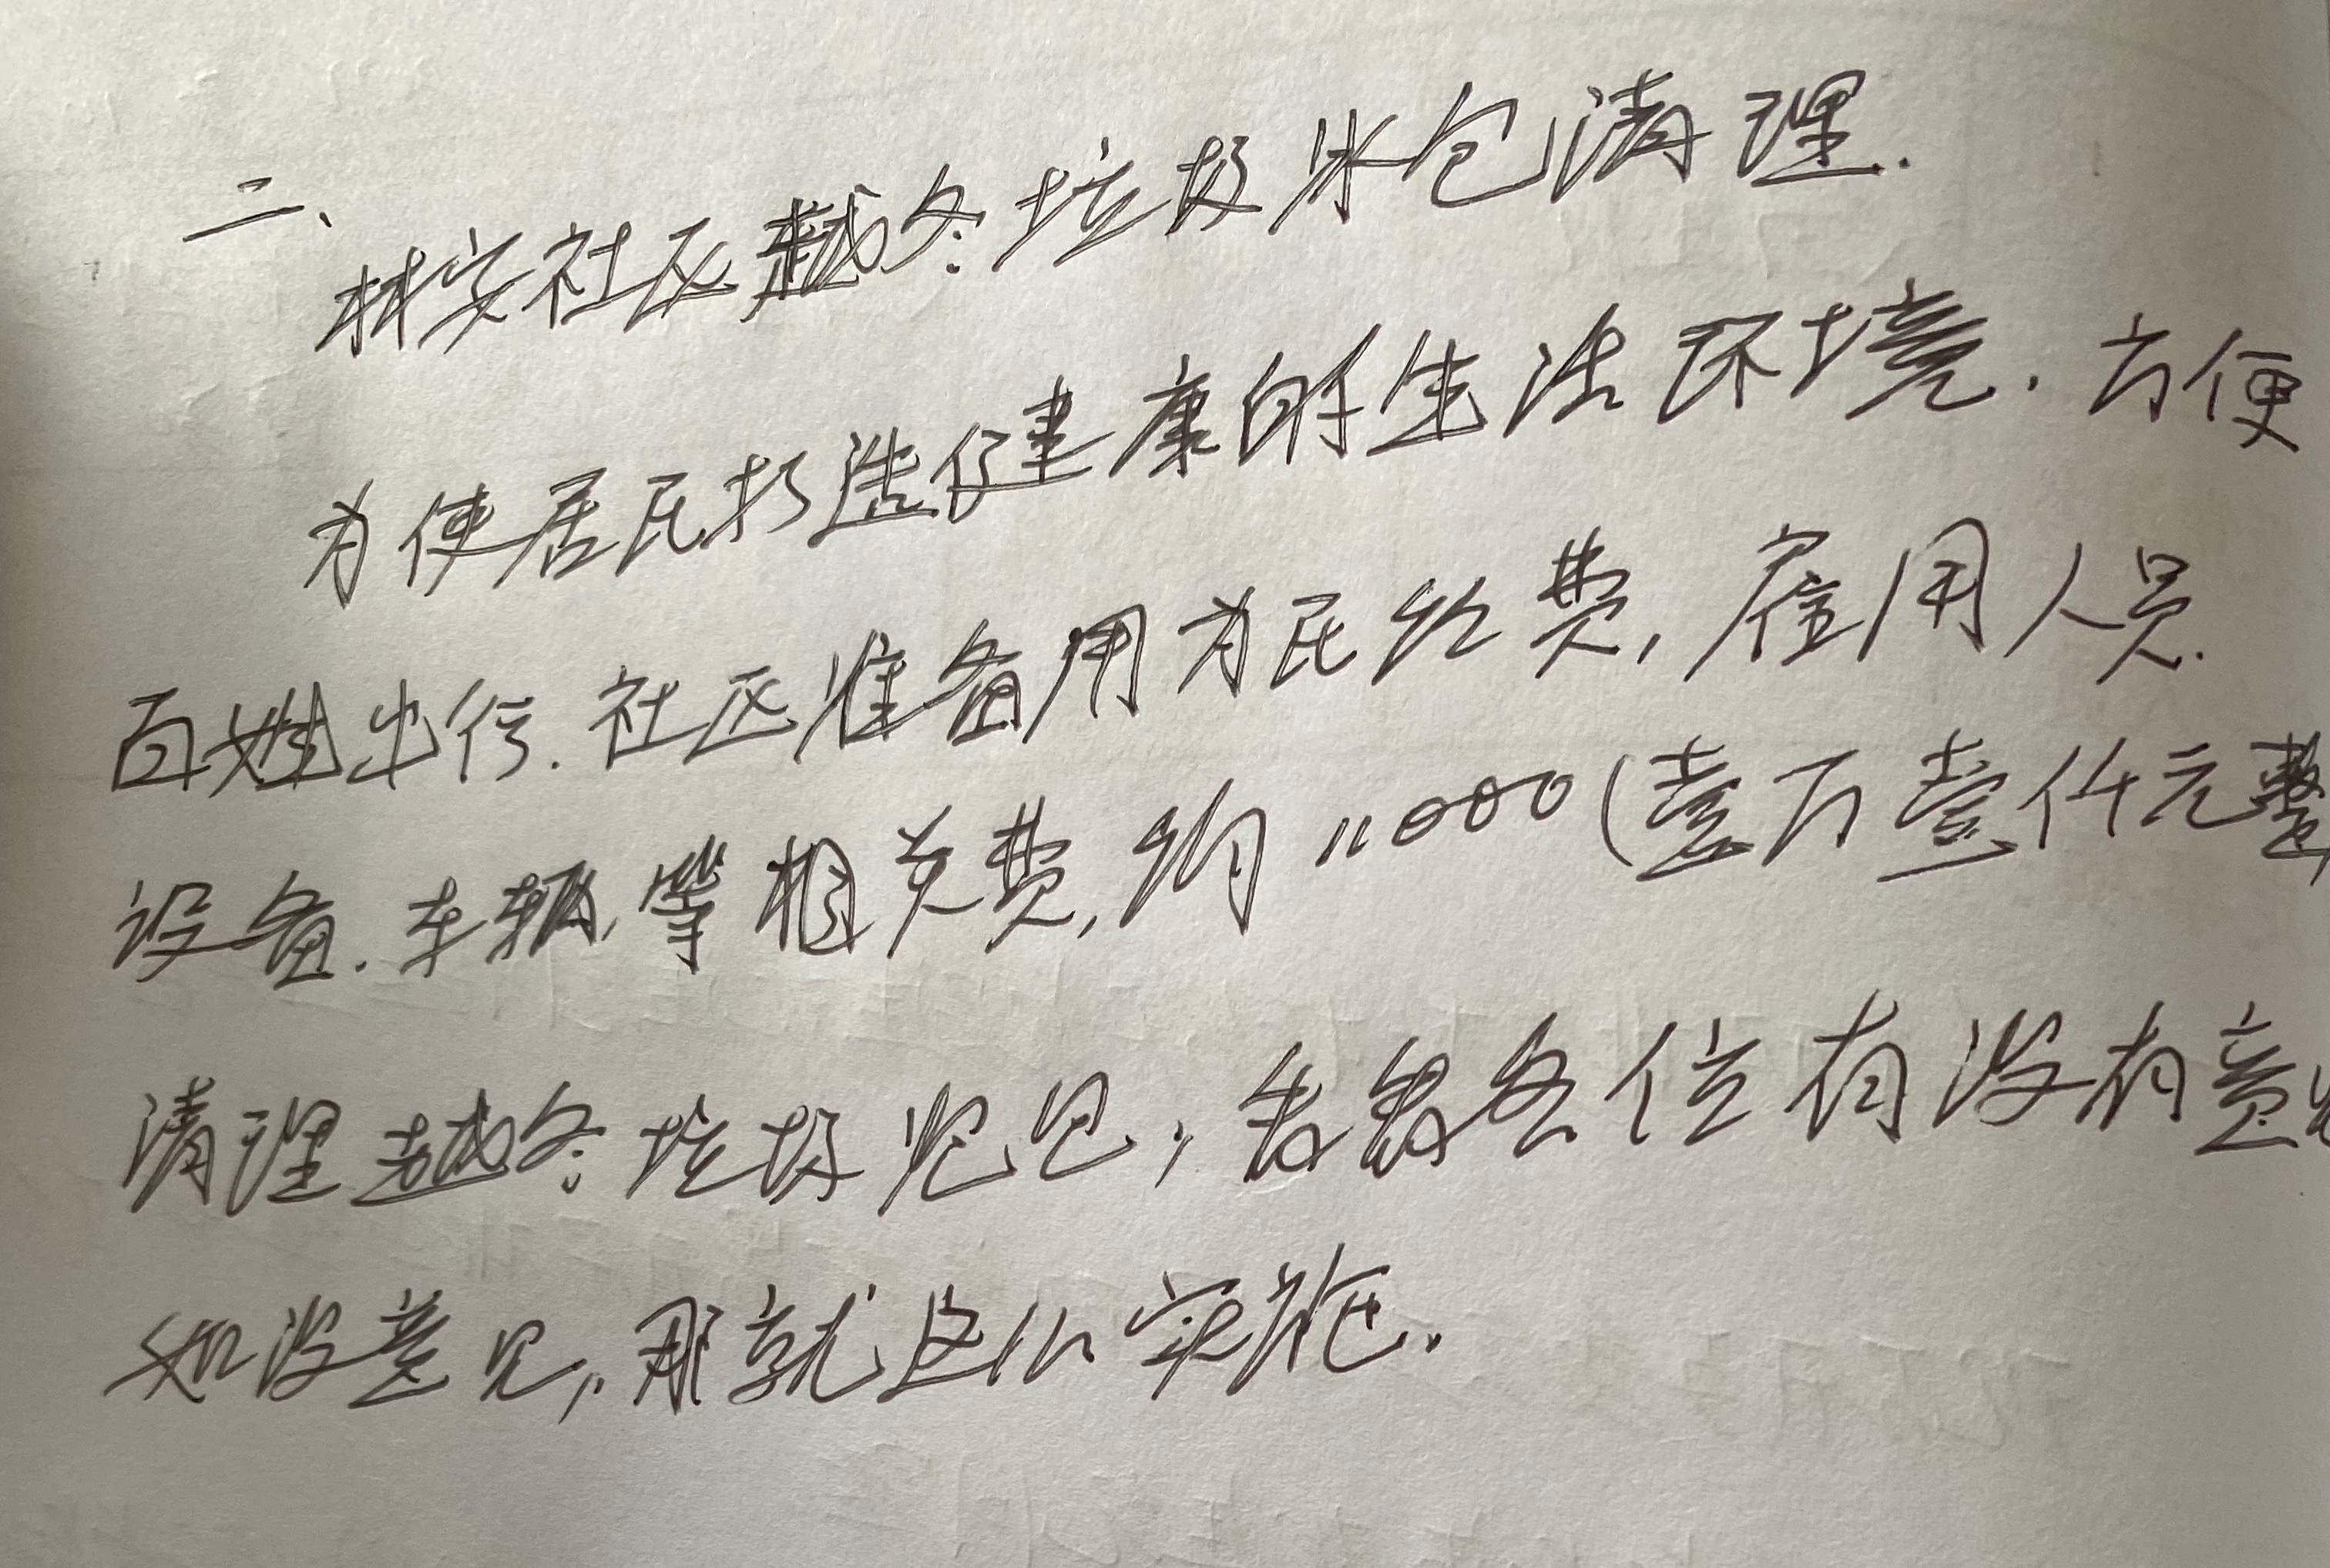 二、
林安社区越冬垃圾冰包清理.
为使居民打造健康的生活环境.方便
百姓出行.社区准备用为民经费,雇用人员.
设备.车辆,等相关费,约11000(壹万壹仟元整
清理越冬垃圾 各位有没有意见
如没意见,那就这么实施.